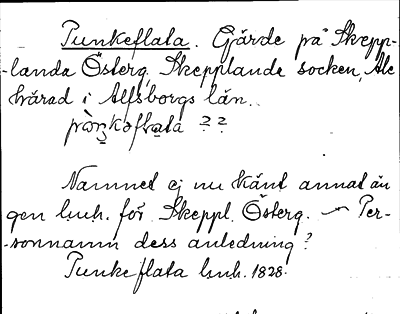 Punkeflata. Gjärde på Skepp-
-landa Österg. Skepplanda socken, Ale
härad i Älfsborgs län.
??
Namnet ej nu känt annat än
gen lm.h. för Skeppl. Österg. — Per-
-sonnamn dess anledning?
Punkeflata lm.h. 1828.